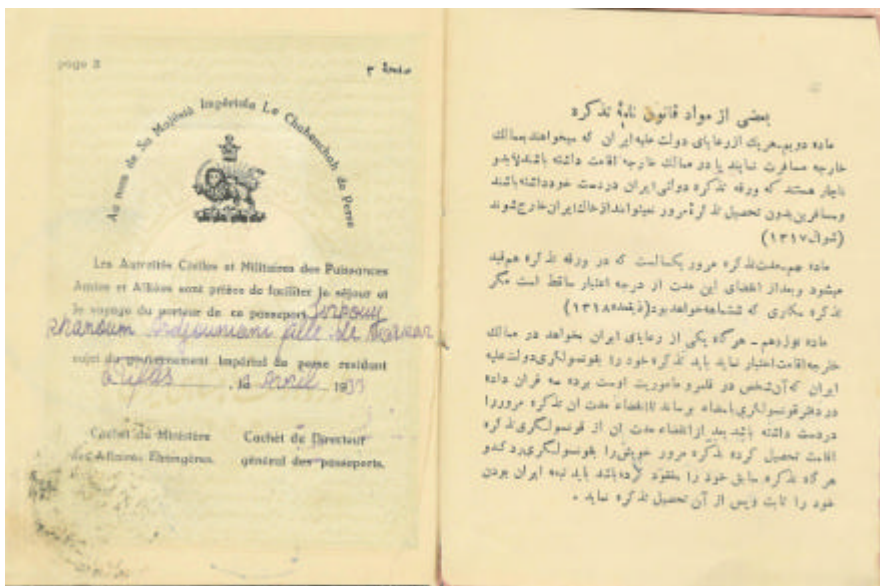 page 3
صفحهٔ ۳
Au nom de Sa Majesté Impériale Le Chahenchah de Perse
Les Autorités Civiles et Militaires des Puissances
Amies et Alliées sont priées de faciliter le séjour et
le voyage du porteur de ce passeport
khanoum fille de
sujet du gouvernement Impérial de perse résidant
Tiflis, 14 Avril 1933
Cachet du Ministère Cachet du Directeur
des Affaires Etrangères. général des passeports.
بعضی از مواد قانون نامهٔ تذکره
ماده دویم-هریک از رعایای دولت علیه ایران که میخواهند بممالک
خارجه مسافرت نمایند یا در ممالک خارجه اقامت داشته باشند لابد و
ناچار هستند که ورقه تذکره دولتی ایران در دست خود داشته باشند
و مسافرین بدون تحصیل تذکرهٔ مرور نمیتوانند از خاک ایران خارج شوند
(شوال ۱۳۱۷)
مدت تذکره مرور یکسالست که در ورقه تذکره هم قید
میشود و بعد از انقضای این مدت از درجه اعتبار ساقط است مگر
تذکره مکاری که ششماهه خواهد بود (ذیقعده ۱۳۱۸)
ماده نوزدهم - هرگاه یکی از رعایای ایران بخواهد در ممالک
خارجه اقامت اختیار نماید باید تذکره خود را بقونسولگری دولت علیه
ایران که آن شخص در قلمرو ماموریت اوست برده سه قران داده
در دفتر قونسولگری بامضاء برساند تا انقضاء مدت آن تذکره مرور را
در دست داشته باشد بعد از انقضاء مدت آن از قونسولگری تذکره
اقامت تحصیل کرده تذکره مرور خویش را بقونسولگری رد کند و
هرگاه تذکره سابق خود را مفقود کرده باشد باید تبعه ایران بودن
خود را ثابت و پس از آن تحصیل تذکره نماید .